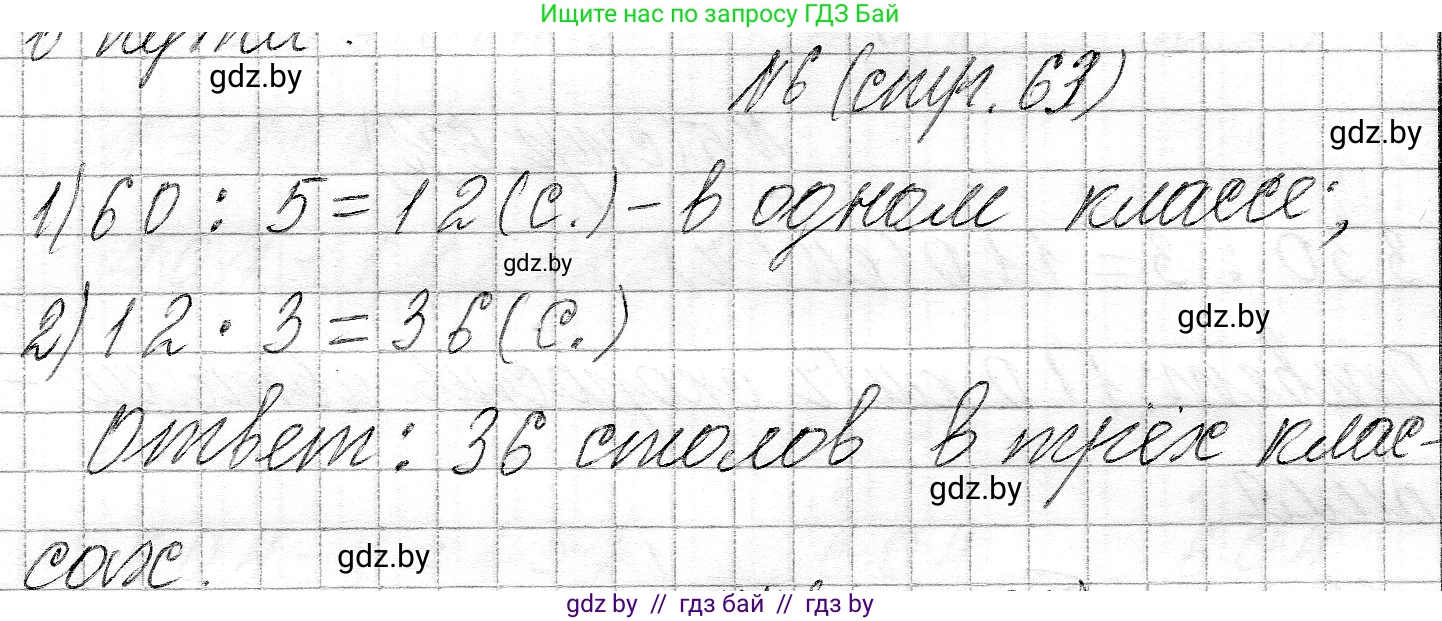 Ищите нас по запросу ГДЗ Бай
в пути.
gdz.by
№6 (стр. 63)
gdz.by
1) 60 : 5 = 12 (с.) – в одном классе;
gdz.by
2) 12 · 3 = 36 (с.)
gdz.by
Ответ: 36 столов в трёх клас-
gdz.by
сах.
gdz.by
gdz by // гдз бай // гдз by